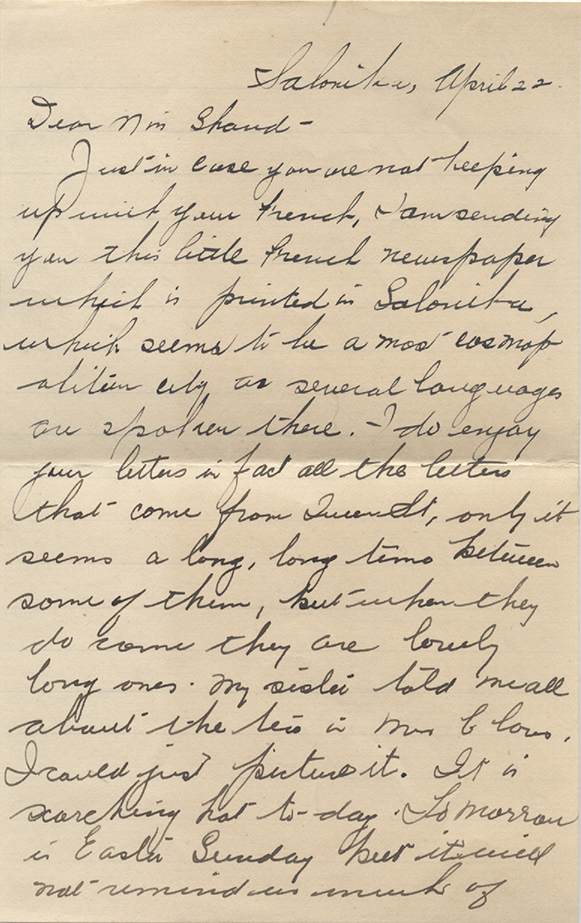 Salonika, April 22.
Dear Miss Shand -
Just in case you are not keeping
up with your French, I am sending
you this little French newspaper
which is printed in Salonika,
which seems to be a most cosmop
olitan city as several languages
are spoken there. - I do enjoy
your letters in fact all the letters
that come from Queen St, only it
seems a long, long time between
some of them, but when they
do come they are lovely
long ones. My sister told me all
about the tea in Mrs
I could just picture it. It is
scorching hot to-day. Tomorrow
is Easter Sunday but it will
not remind us much of